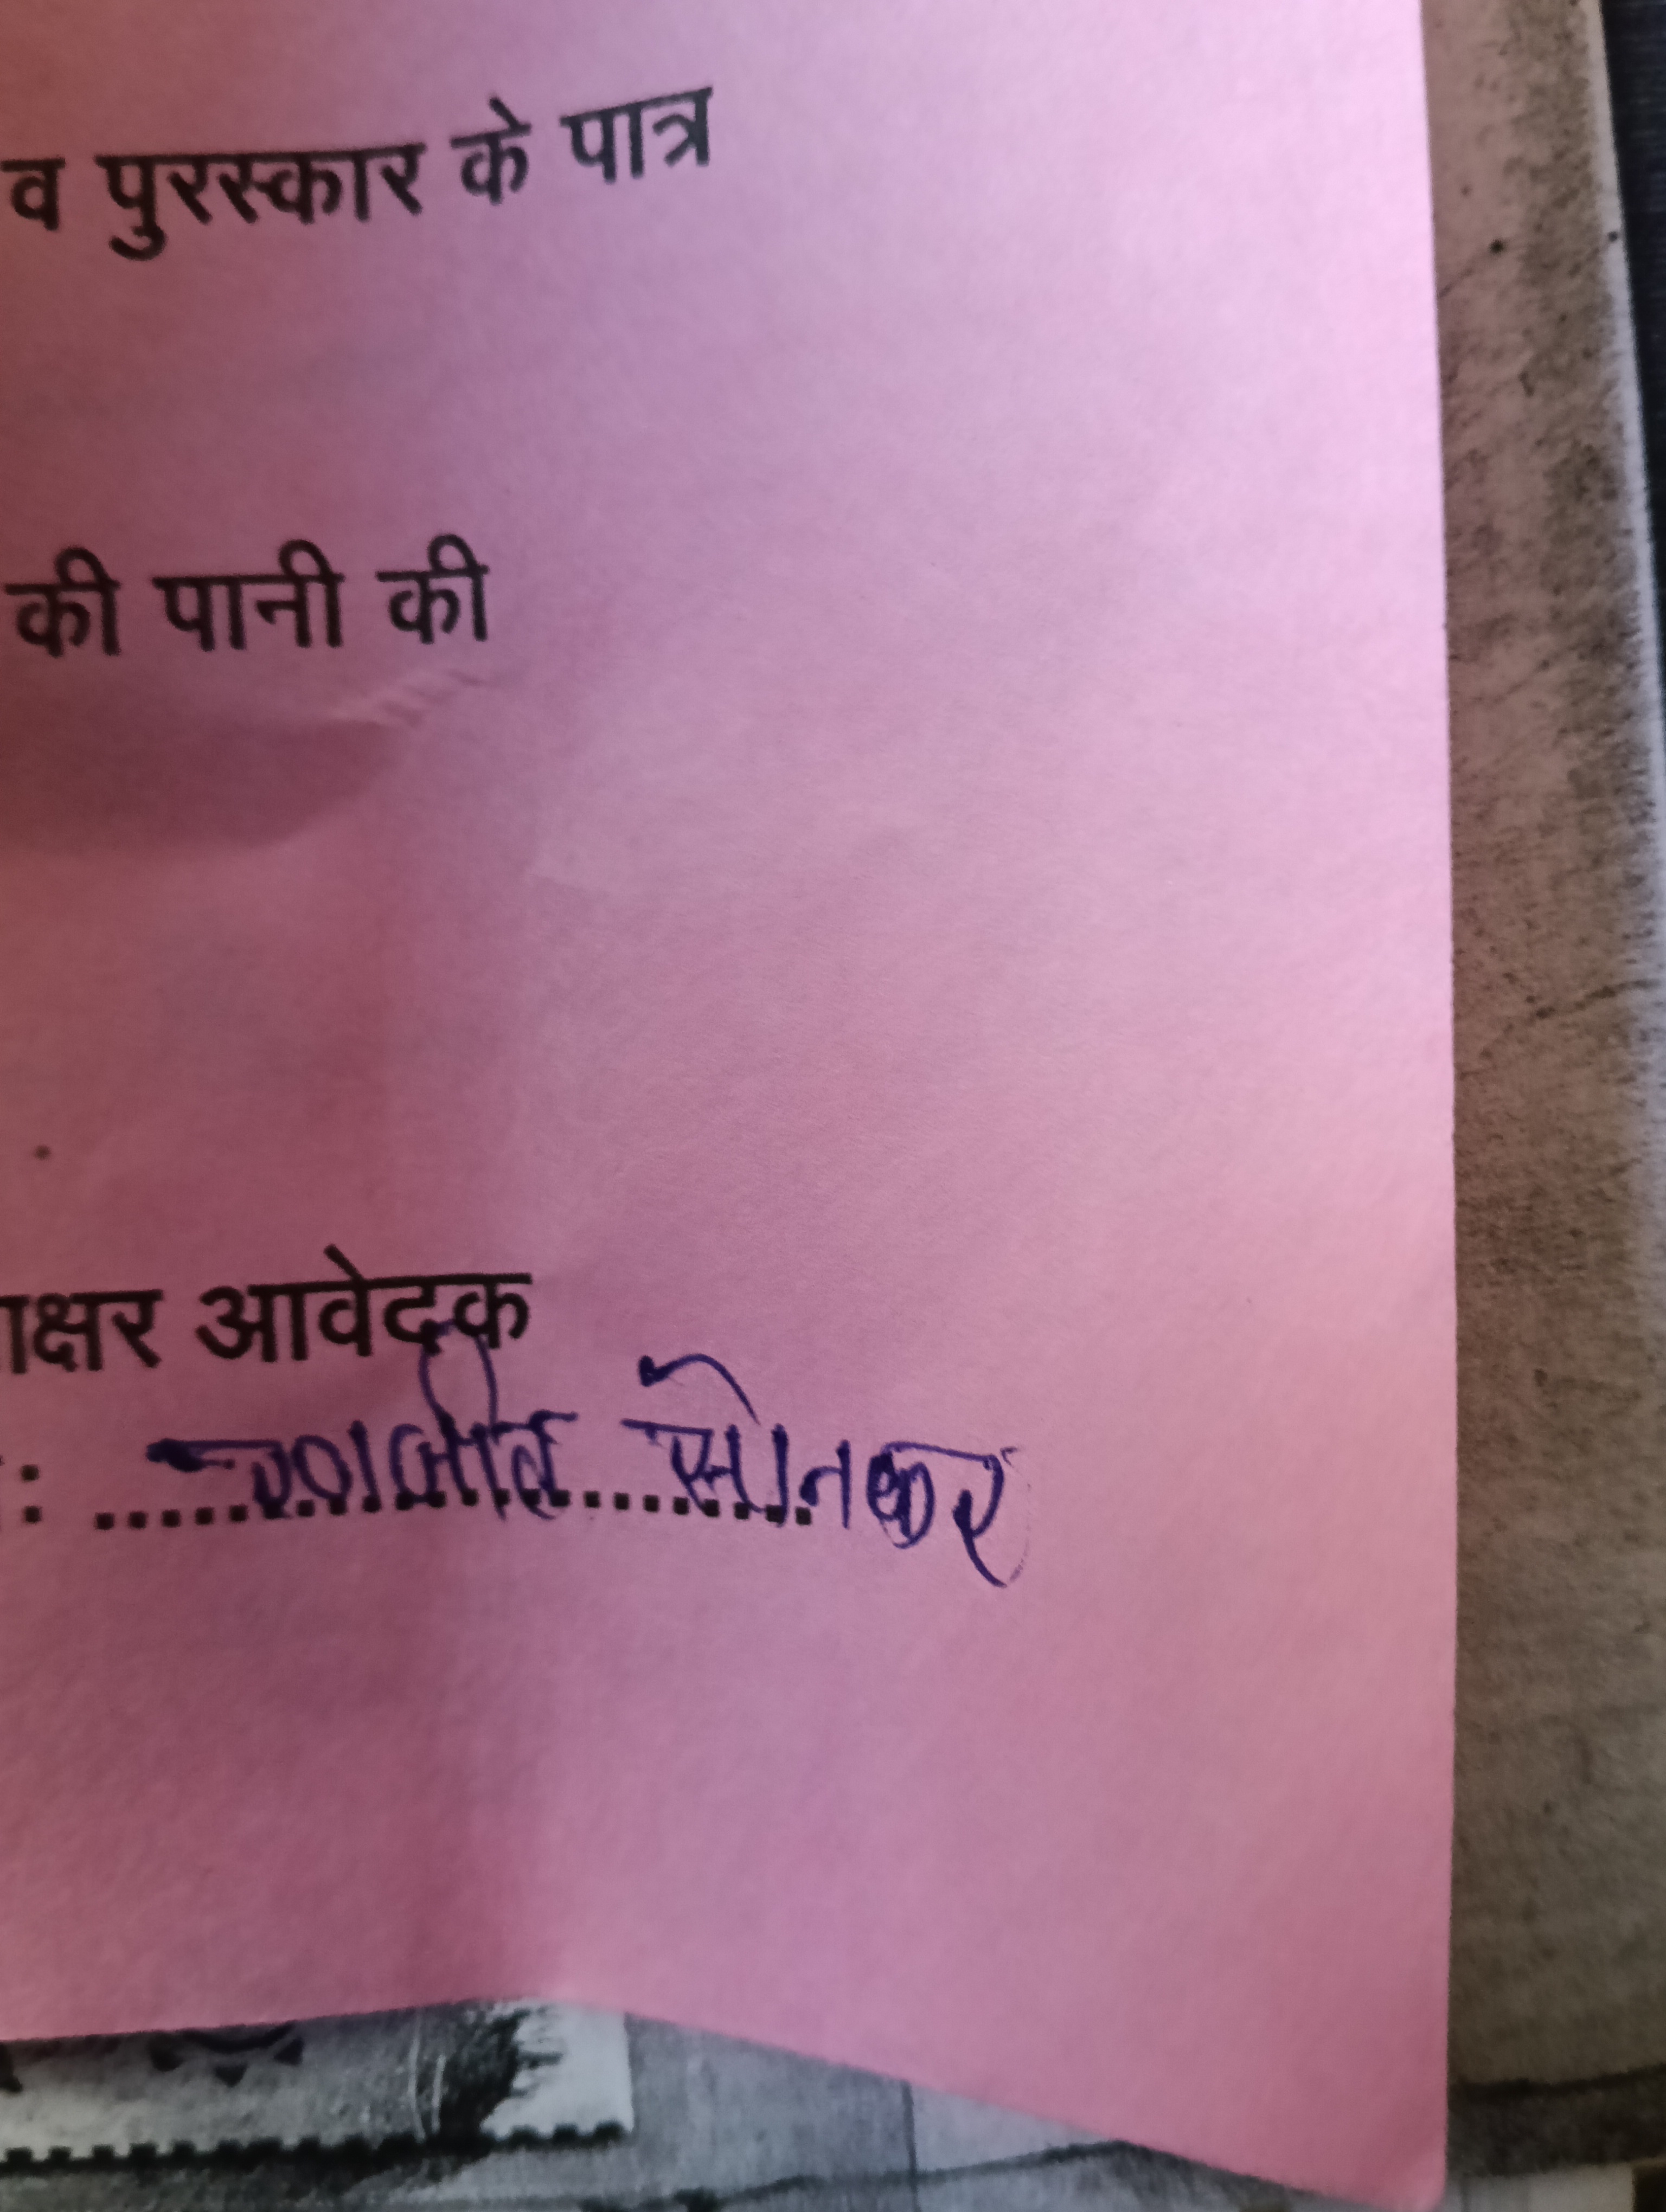 व पुरस्कार के पात्र
की पानी की
ाक्षर आवेदक
: .................. सोनकर